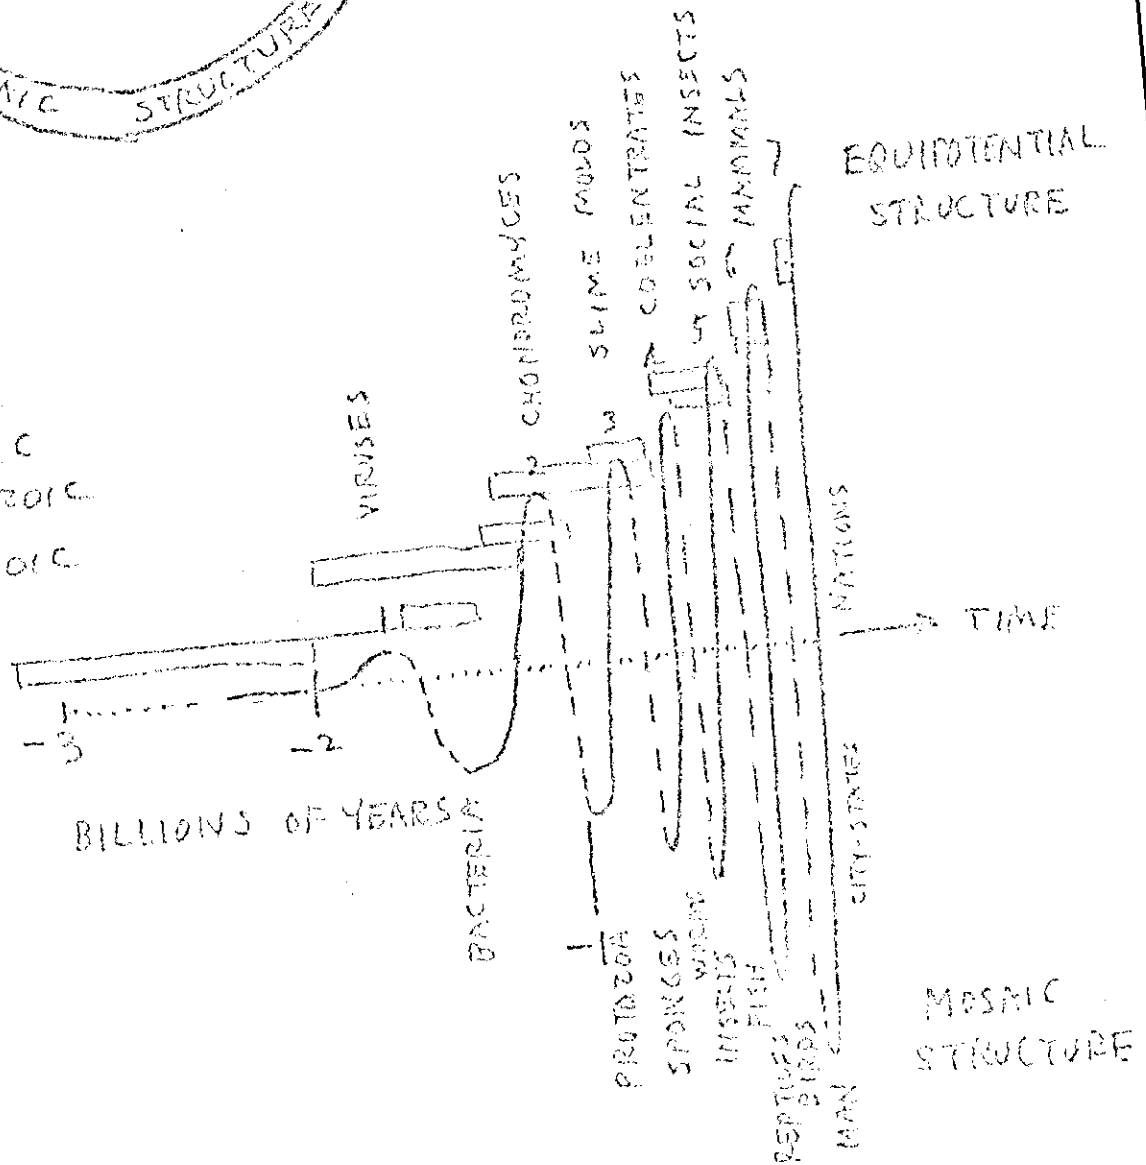 STRUCTURE
EQUIPOTENTIAL
STRUCTURE
VIRUSES
CHONDROMYCES
SLIME MOLDS
COELENTRATES
SOCIAL INSECTS
MAMMALS
2
3
7
C
ZOIC
OIC
NATIONS
TIME
-3
-2
-1
BILLIONS OF YEARS
CITY-STATES
BACTERIA
PROTOZOA
SPONGES
WORMS
INSECTS
FISH
REPTILES
BIRDS
MAN
MOSAIC
STRUCTURE